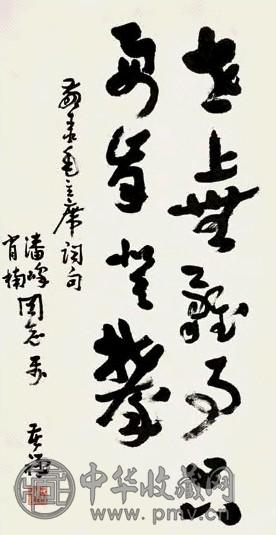 世上無難事只
要肯登攀
敬录毛主席词句
潘峰
肖楠
同志
中华收藏网
www.pmv.cn